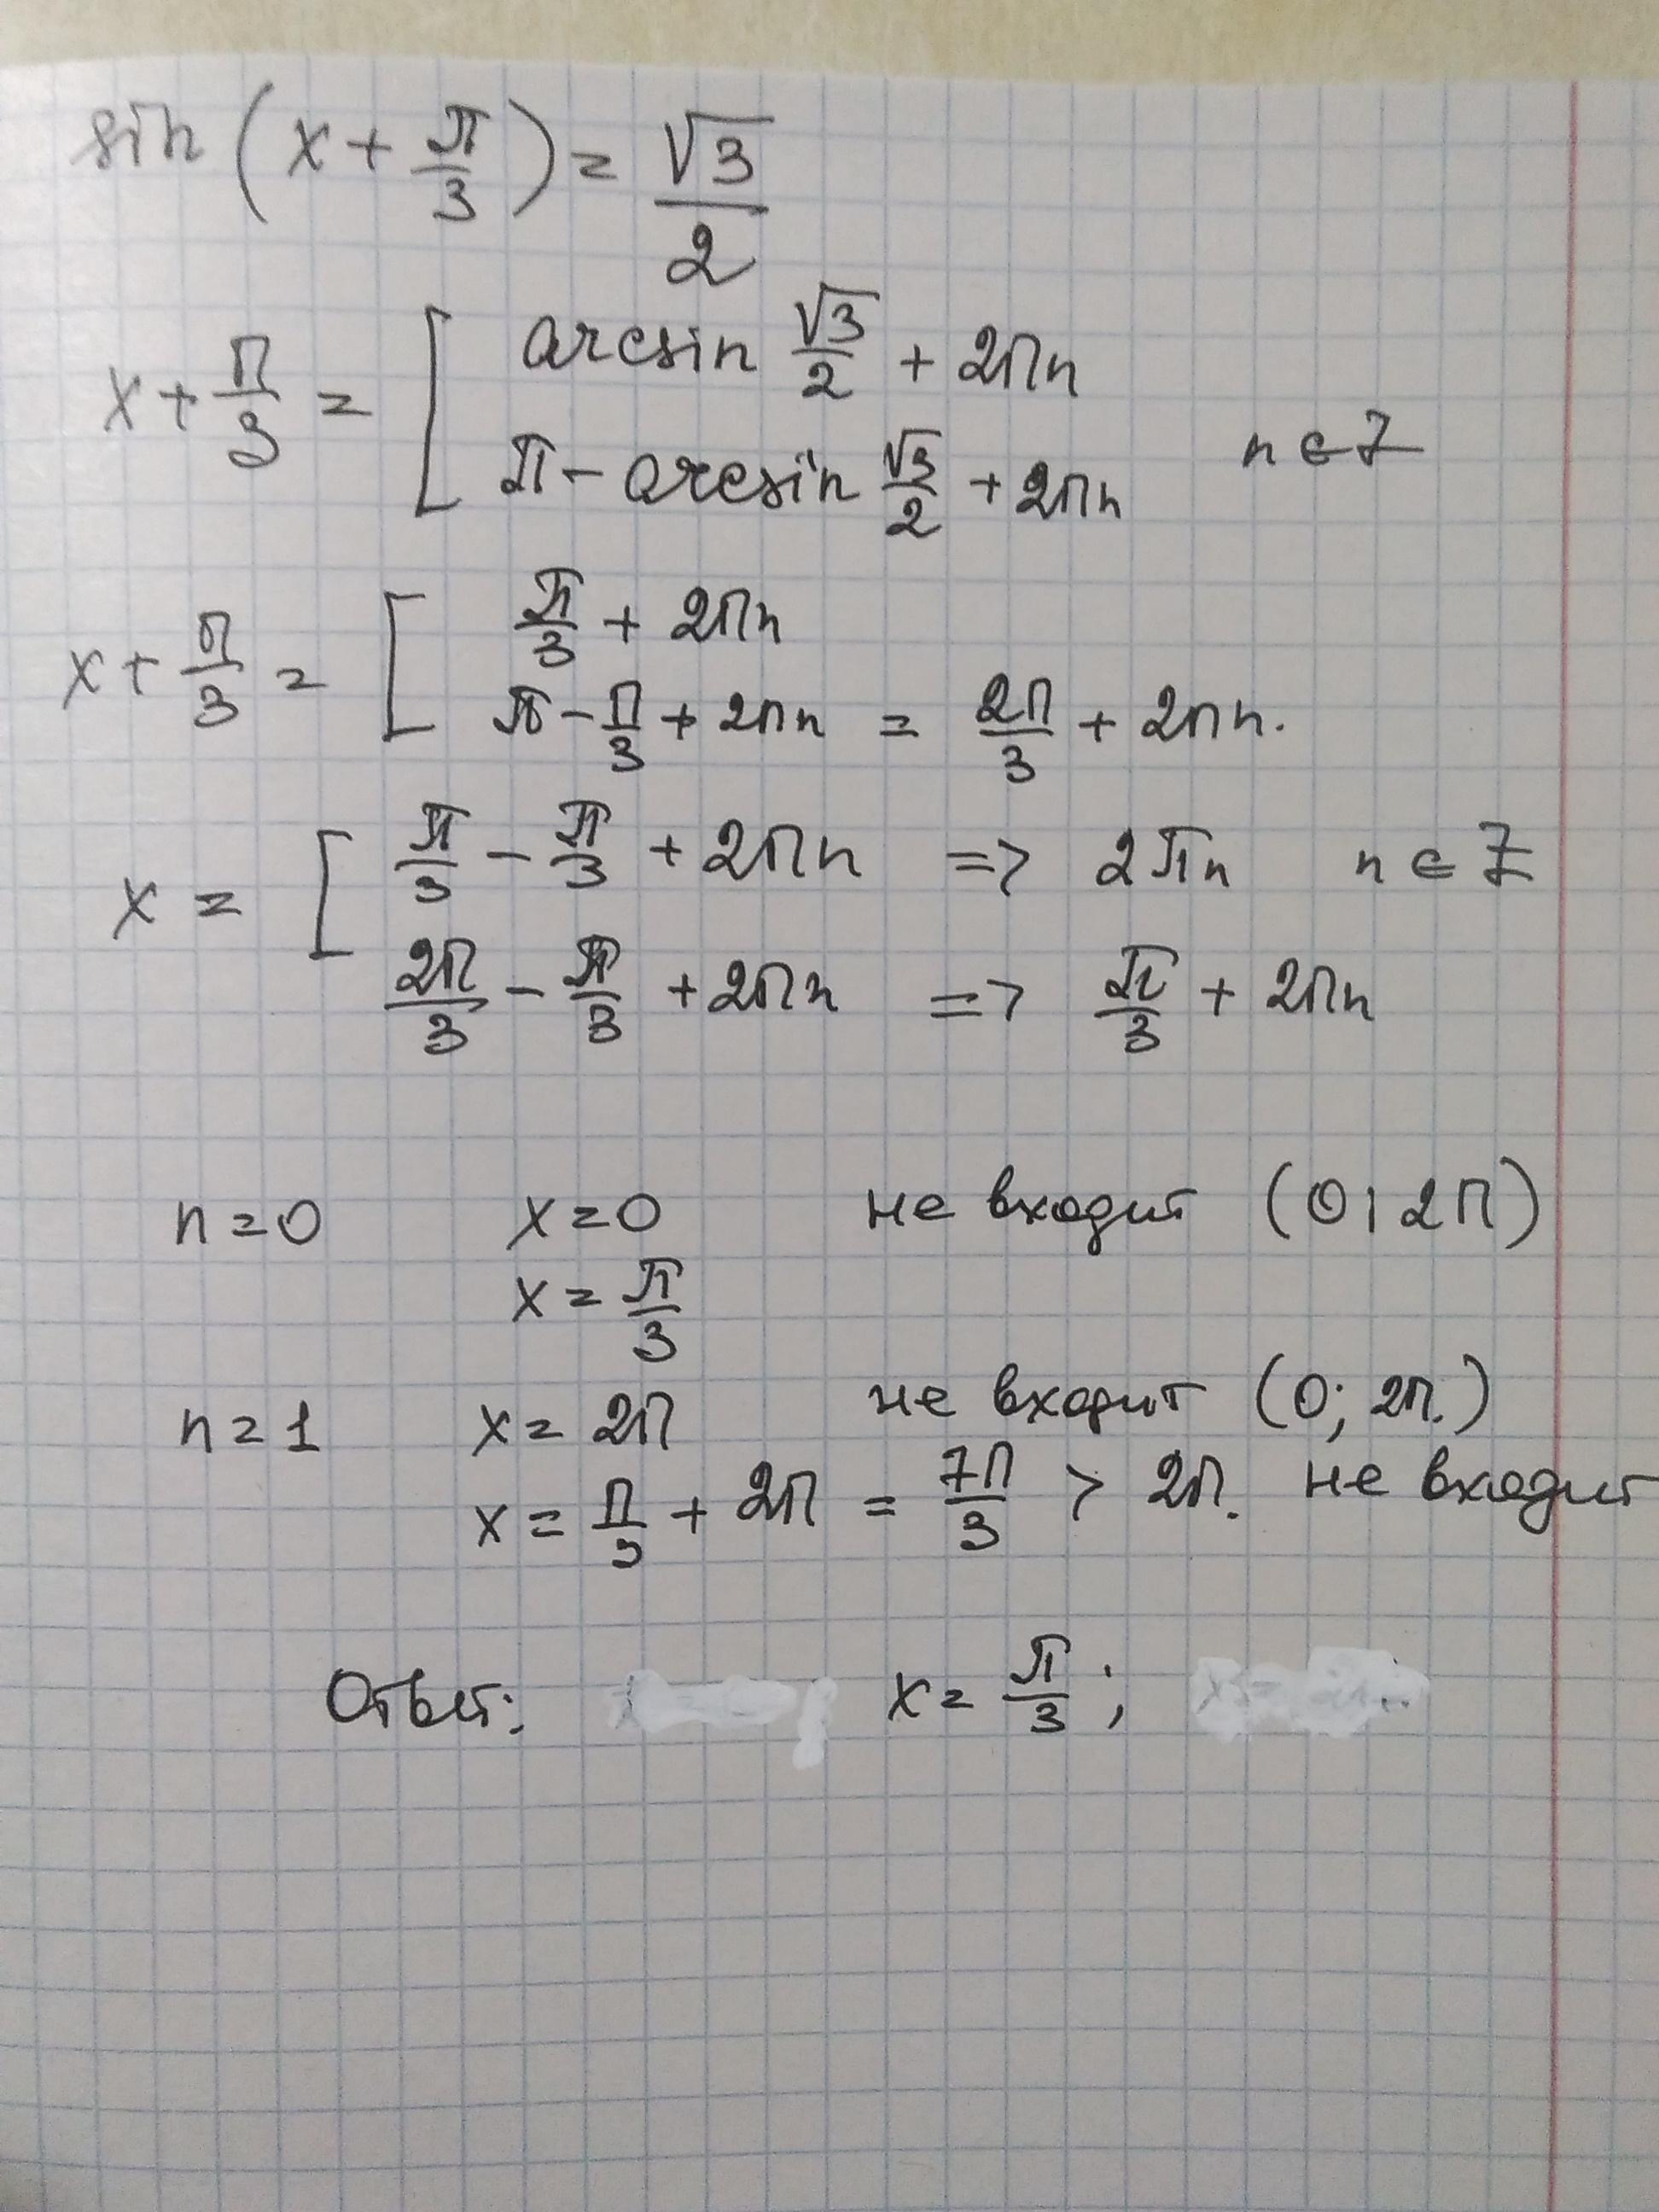 sin (x + π/3) = √3/2
x + π/3 = [ arcsin √3/2 + 2πn
π - arcsin √3/2 + 2πn n ∈ Z
x + π/3 = [ π/3 + 2πn
π - π/3 + 2πn = 2π/3 + 2πn.
x = [ π/3 - π/3 + 2πn => 2πn n ∈ Z
2π/3 - π/3 + 2πn => π/3 + 2πn
n = 0 x = 0 не входит (0; 2π)
x = π/3
n = 1 x = 2π не входит (0; 2π.)
x = π/3 + 2π = 7π/3 > 2π. не входит
Ответ: x = π/3;